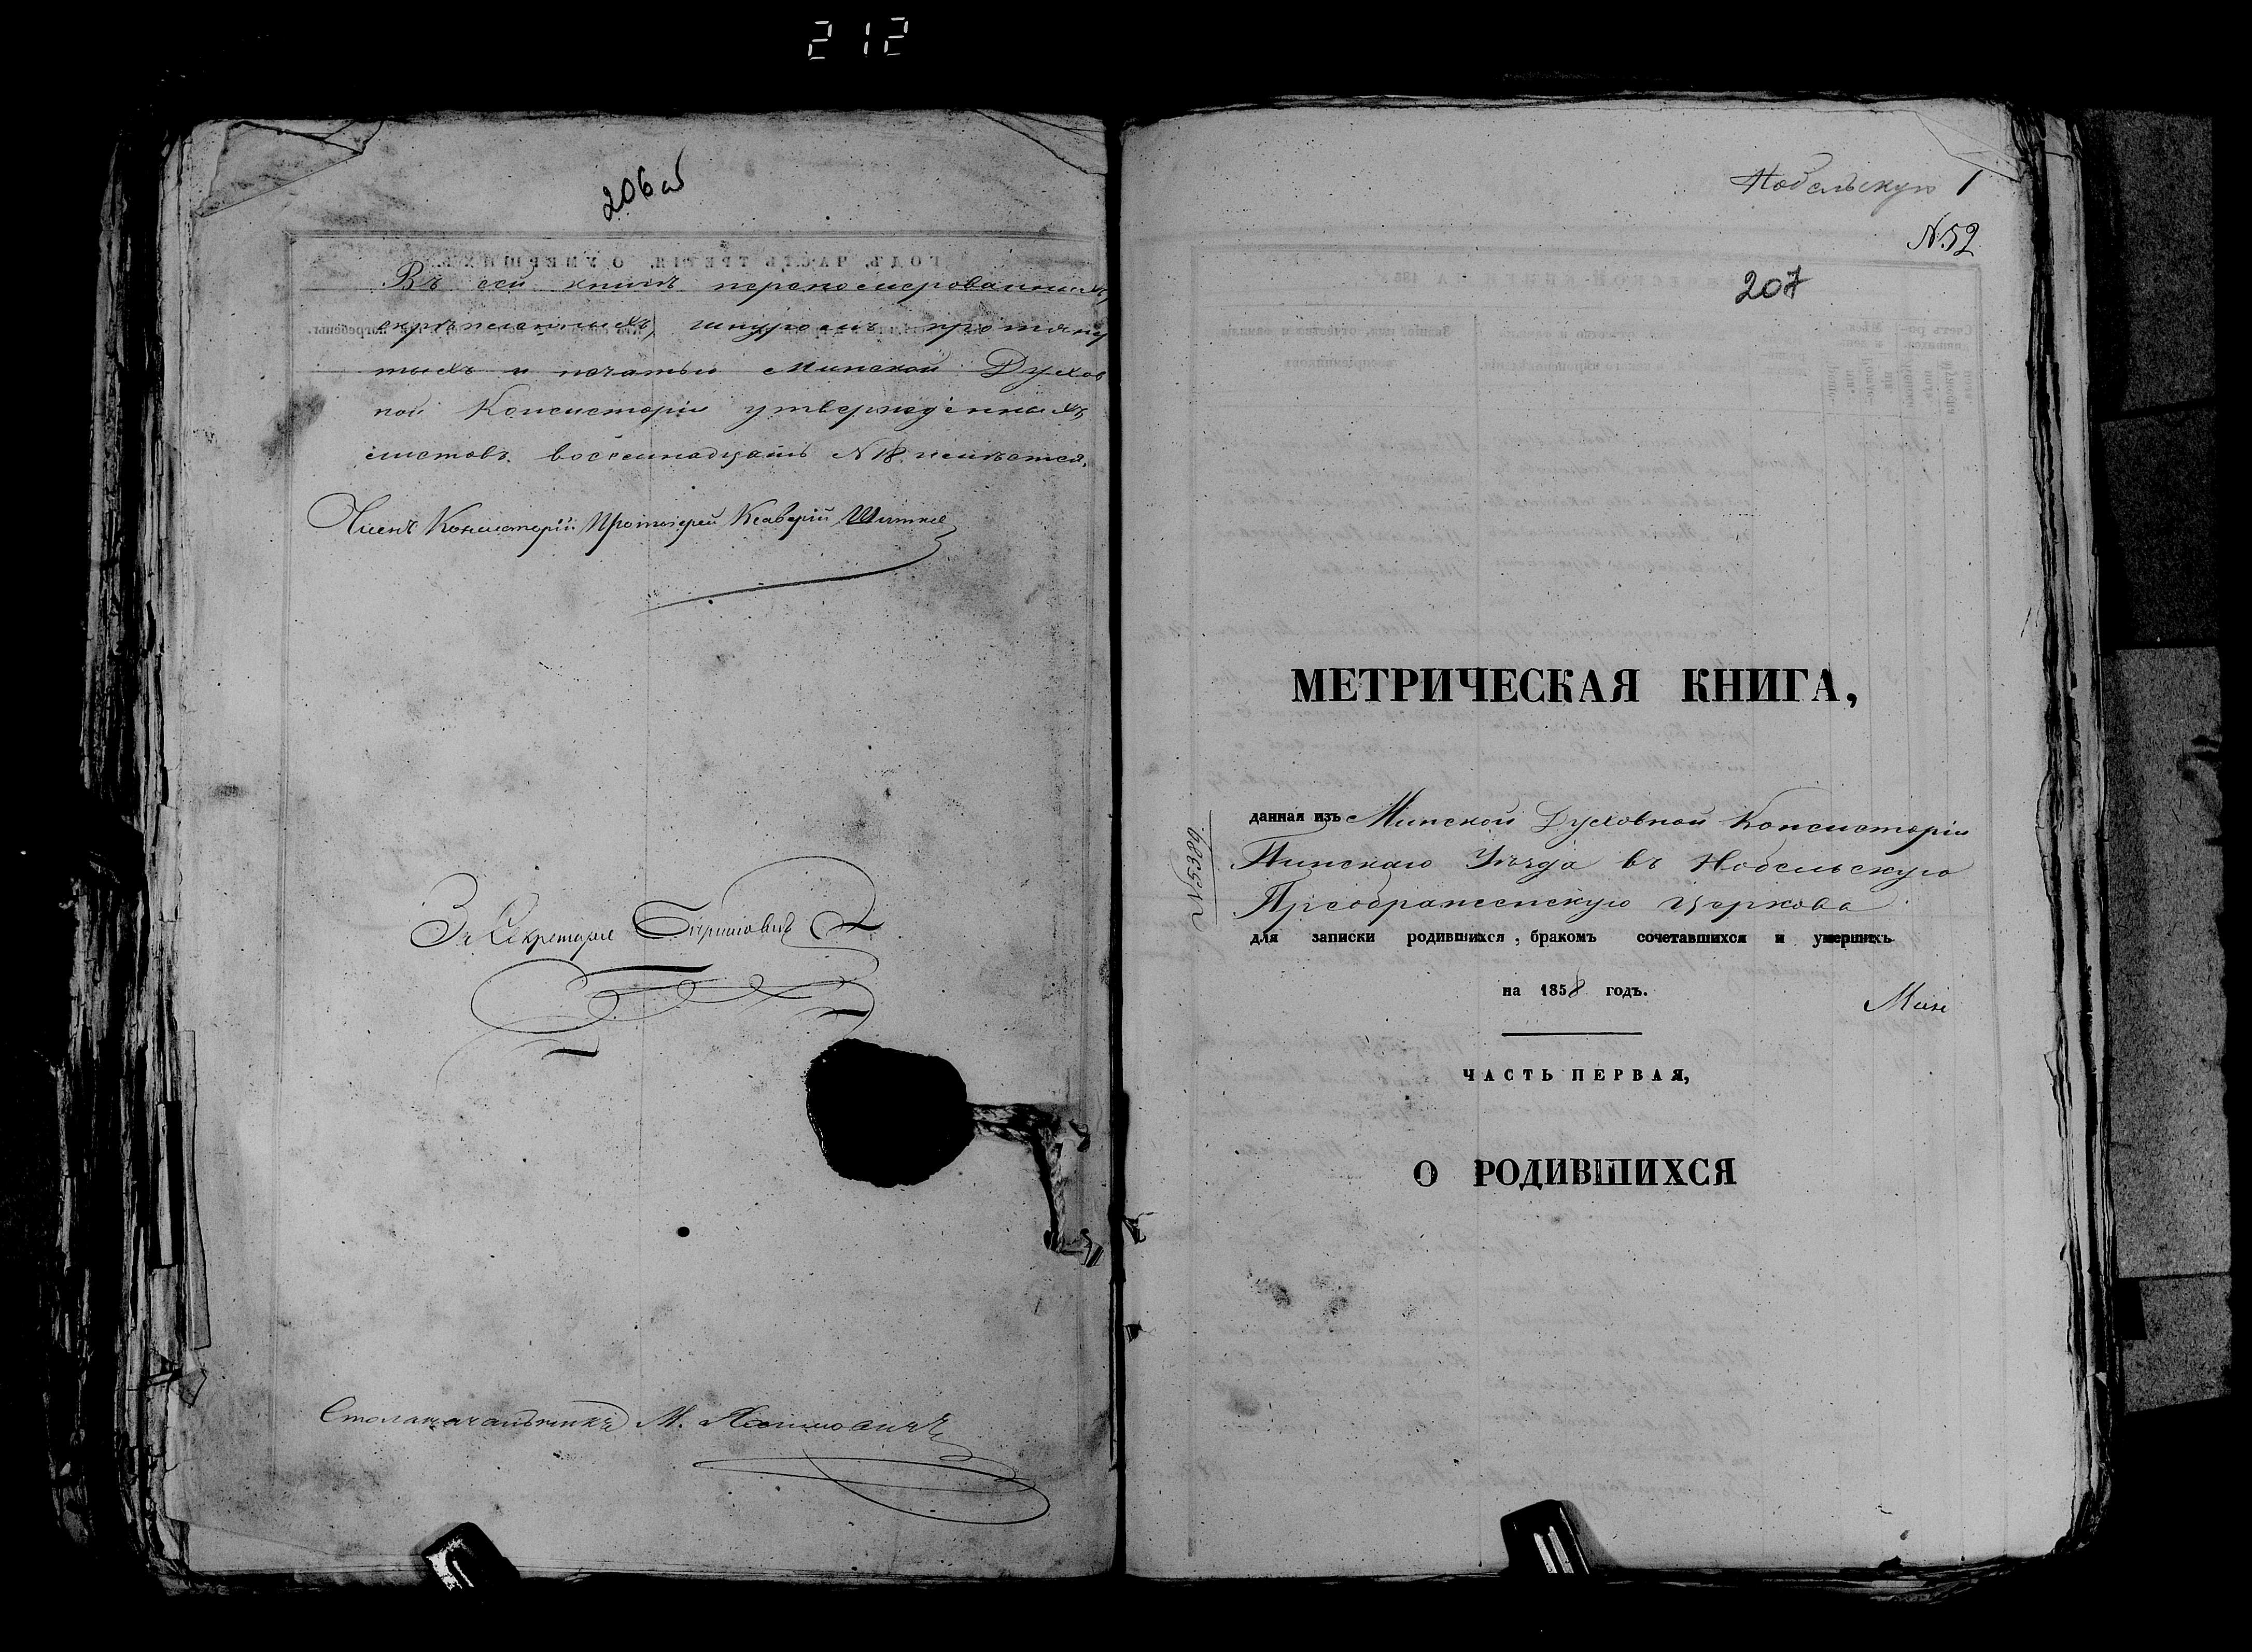 212
206 об
Въ сей книгѣ перенумерованныхъ,
скрѣпленныхъ, шнуромъ протяну
тыхъ и печатью Минской Духов
ной Консисторіи утвержденныхъ
листовъ восемнадцать N 18. имѣется.
Членъ Консисторіи Протоіерей Ксаверій
За Секретаря
Столоначальникъ М.
Нобельскую 1
N. 52
207
МЕТРИЧЕСКАЯ КНИГА,
данная изъ Минской Духовной Консисторіи
Пинскаго Уѣзда въ Нобельскую
Преображенскую Церковь
для записки родившихся, бракомъ сочетавшихся и умершихъ
на 1858 годъ.
Мин
ЧАСТЬ ПЕРВАЯ,
О РОДИВШИХСЯ
N 5389